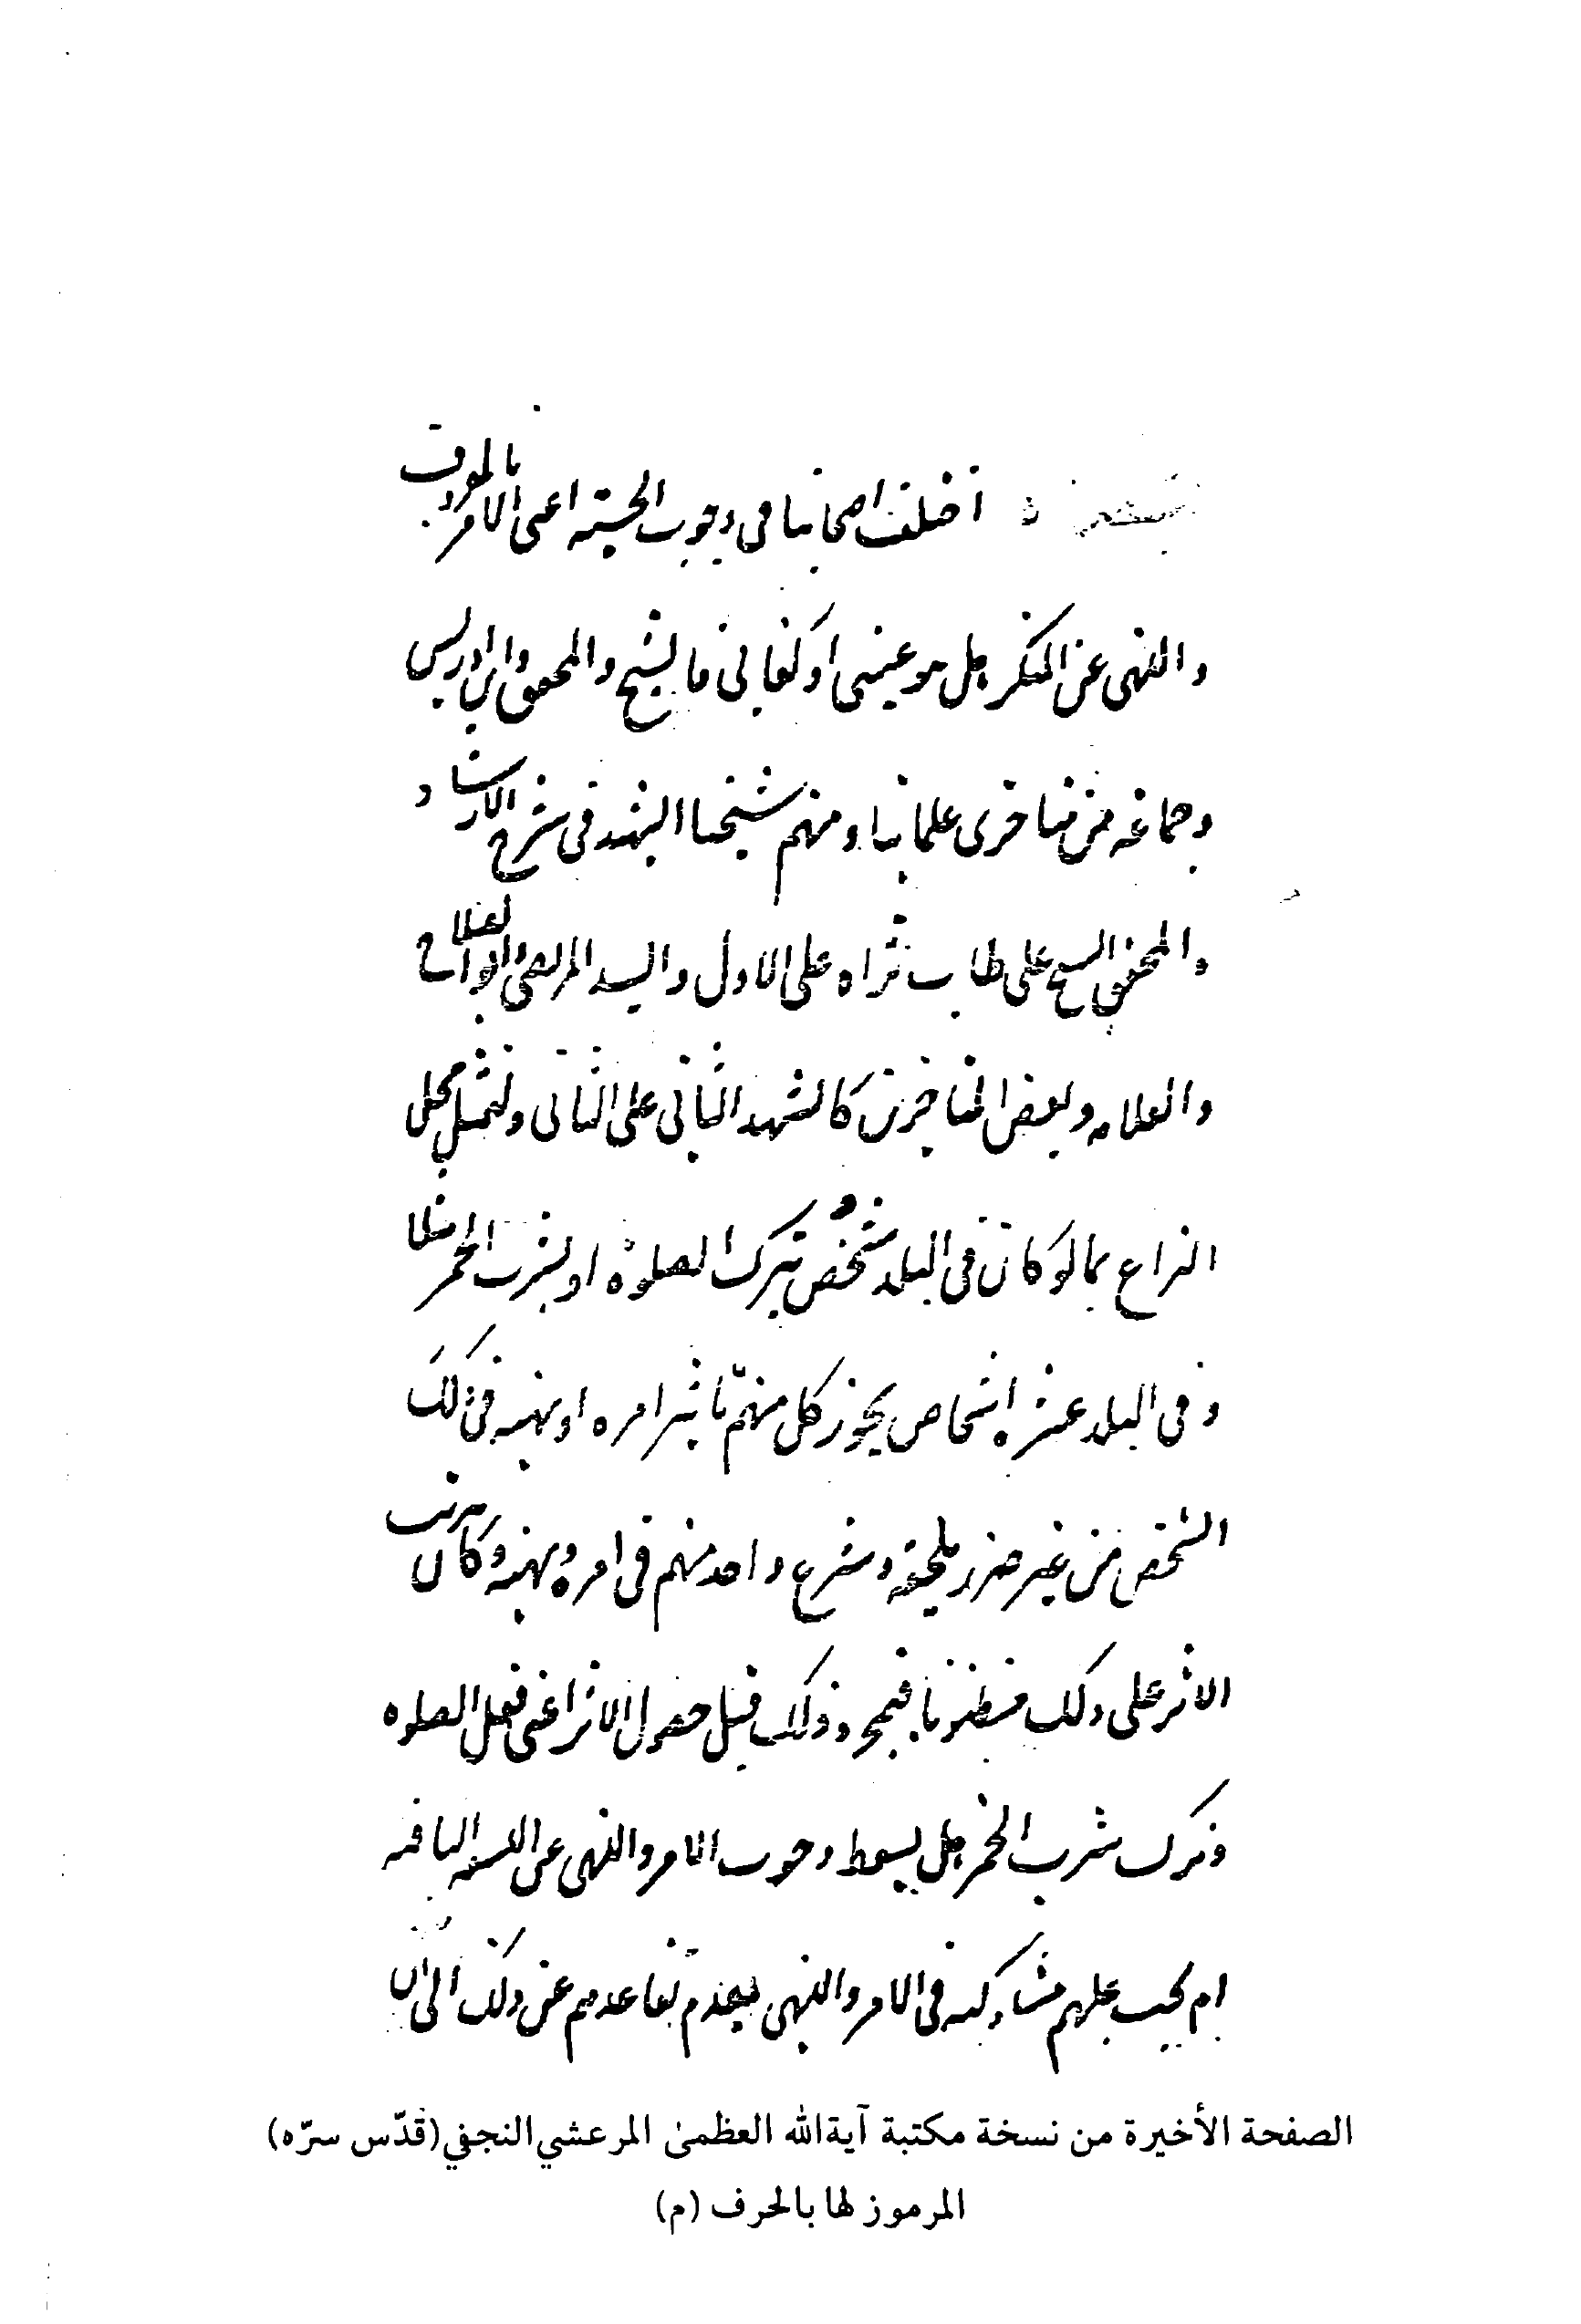 اختلف اصحابنا فى وجوب الحسبة اعنى الامر بالمعروف
والنهى عن المنكر هل هو عينى او كفائى فالشيخ والمحقق وابن ادريس
وجماعة من متاخرى علمائنا ومنهم شيخنا الشهيد فى شرح الارشاد
والمحقق الشيخ على طاب ثراه على الاول والسيد المرتضى وابو الصلاح
والعلامه وبعض المتاخرين كالشهيد الثانى على الثانى ولنمثل محل
النزاع بما لو كان فى البلد شخص يترك الصلوة او يشرب الخمر مثلا
وفى البلد عشرة اشخاص يجوز كل منهم تاثير امره او نهيه فى ذلك
الشخص من غير ضرر يلحقه وشرع واحد منهم فى امره ونهيه وكان ترتب
الاثر على ذلك مظنونا فبمجرد ذلك قبل حصول الاثر اعنى فعل الصلوه
وترك شرب الخمر هل يسقط وجوب الامر والنهى عن التسعه الباقيه
ام يجب عليهم مشاركته فى الامر والنهى بعدم تقاعدهم عن ذلك الى ان
الصفحة الأخيرة من نسخة مكتبة آية‌الله العظمىٰ المرعشي النجفي (قدّس سرّه)
المرموز لها بالحرف (م)